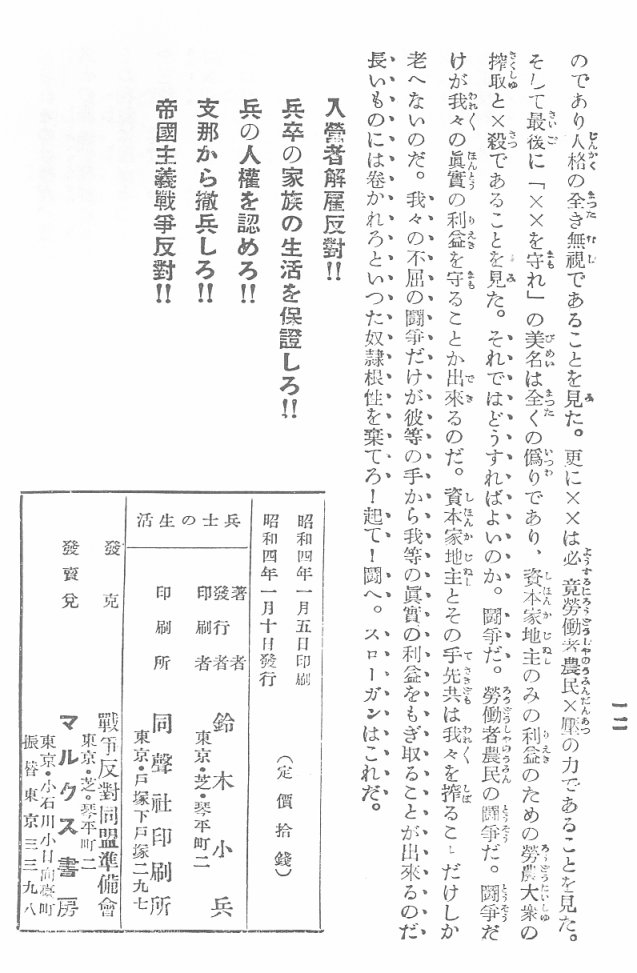 のであり人格の全き無視であることを見た。更に××は必竟勞働者農民×壓の力であることを見た。
そして最後に「××を守れ」の美名は全くの僞りであり、資本家地主のみの利益のための勞農大衆の
搾取と×殺であることを見た。それではどうすればよいのか。鬪爭だ。勞働者農民の鬪爭だ。鬪爭だ
けが我々の眞實の利益を守ることか出來るのだ。資本家地主とその手先共は我々を搾ることだけしか
老へないのだ。我々の不屈の鬪爭だけが彼等の手から我等の眞實の利益をもぎ取ることが出來るのだ
長いものには卷かれろといつた奴隷根性を棄てろ!起て!鬪へ。スローガンはこれだ。
入營者解雇反對!!
兵卒の家族の生活を保證しろ!!
兵の人權を認めろ!!
支那から撤兵しろ!!
帝國主義戰爭反對!!
一二
昭和四年一月五日印刷
昭和四年一月十日發行
(定價拾錢)
兵士の生活
著者
發行者
印刷者
鈴木小兵
東京・芝・琴平町二
印刷所
同聲社印刷所
東京・戸塚下戸塚二九七
發克
戰爭反對同盟準備會
東京・芝。琴平町二
發賣兌
マルクス書房
東京・小石川小日向臺町
振替東京三三九八